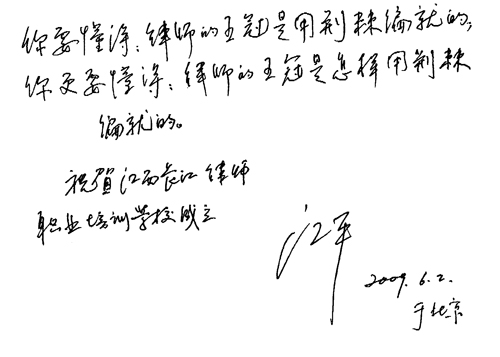 你要懂得：律师的王冠是用荆棘编就的；
你更要懂得：律师的王冠是怎样用荆棘
编就的。
祝贺江西长江律师
职业培训学校成立
江平
2009. 6. 2.
于北京